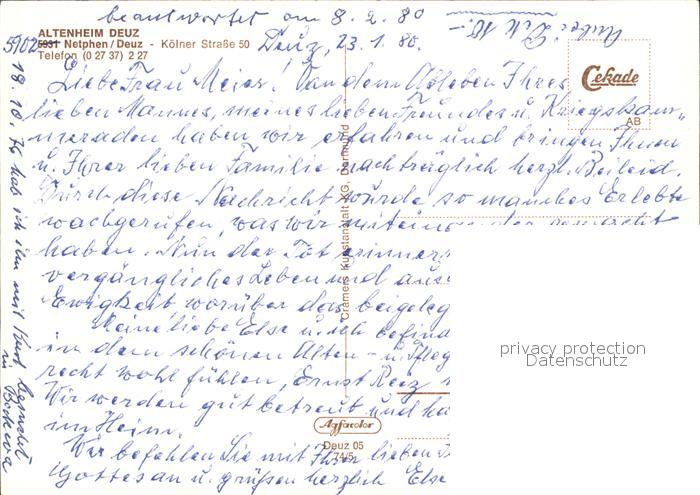 beantwortet am 8.2.80
ALTENHEIM DEUZ
5902 5931 Netphen/Deuz - Kölner Straße 50
Telefon (0 27 37) 2 27
Deuz, 23.1.80.
Cekade
AB
Liebe Frau Meier! Von dem Ableben Ihres
lieben Mannes, meines lieben Freundes u. Kriegskam„
meraden haben wir erfahren und bringen Ihnen
u. Ihrer lieben Familie nachträglich herzl. Beileid.
Durch diese Nachricht wurde so manches Erlebte
wachgerufen, was wir mitein der gemacht
haben. Nun der Tot erinner
vergängliches Leben und aus
Ewigkeit worüber das beigeleg
Meine liebe Else u. ich befind
in dem schönen Alten- u. Pfleg
recht wohl fühlen, Ernst
Wir werden gut betreut und ha
im Heim.
Wir befehlen Sie mit Ihren lieben
Gottes an u. grüßen herzlich Else
18.10.76 hab ich ihn mit Kurt besucht
in
Cramers Kunstanstalt KG, Dortmund
Agfacolor
Deuz 05
74/5
privacy protection
Datenschutz